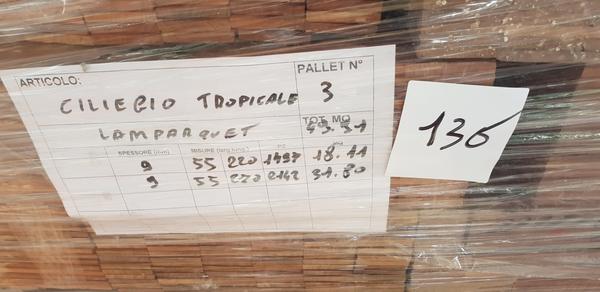 ARTICOLO:
PALLET N°
CILIEGIO TROPICALE
3
LAMPARQUET
TOT. MQ
49.91
SPESSORE (mm) MISURE (larg.lung.) PZ
9 55 220 1497 18.11
9 55 270 2142 31.80
136